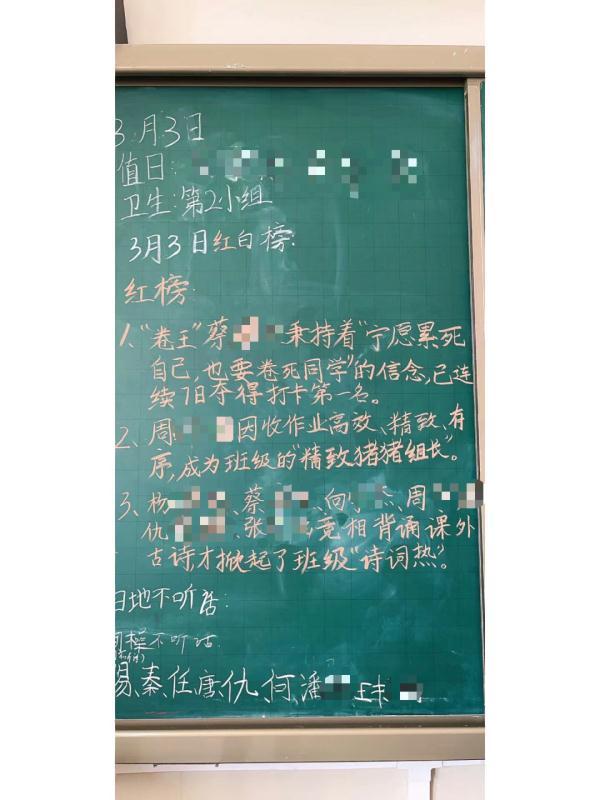 3月3日
值日:
卫生:第2小组
3月3日红白榜:
红榜:
1、"卷王"蔡 秉持着"宁愿累死
自己,也要卷死同学"的信念,已连
续7日夺得打卡第一名。
2、周 因收作业高效、精致、有
序,成为班级的"精致猪猪组长"。
3、杨 、蔡 、向 、周
仇 、张 竞相背诵课外
古诗才掀起了班级"诗词热"。
扫地不听话:
操不听话
易、秦、任唐仇何潘